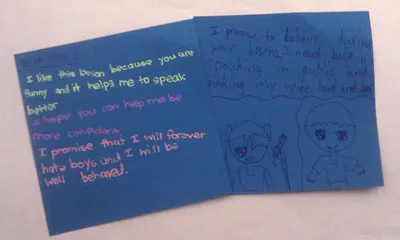 I like this lesson because you are
funny and it helps me to speak
better
I hope you can help me be
more confident.
I promise that I will forever
hate boys and I will be
well behaved.
I promise to behave during
your lessons, I need help in
speaking in public and
making my voice loud and clear